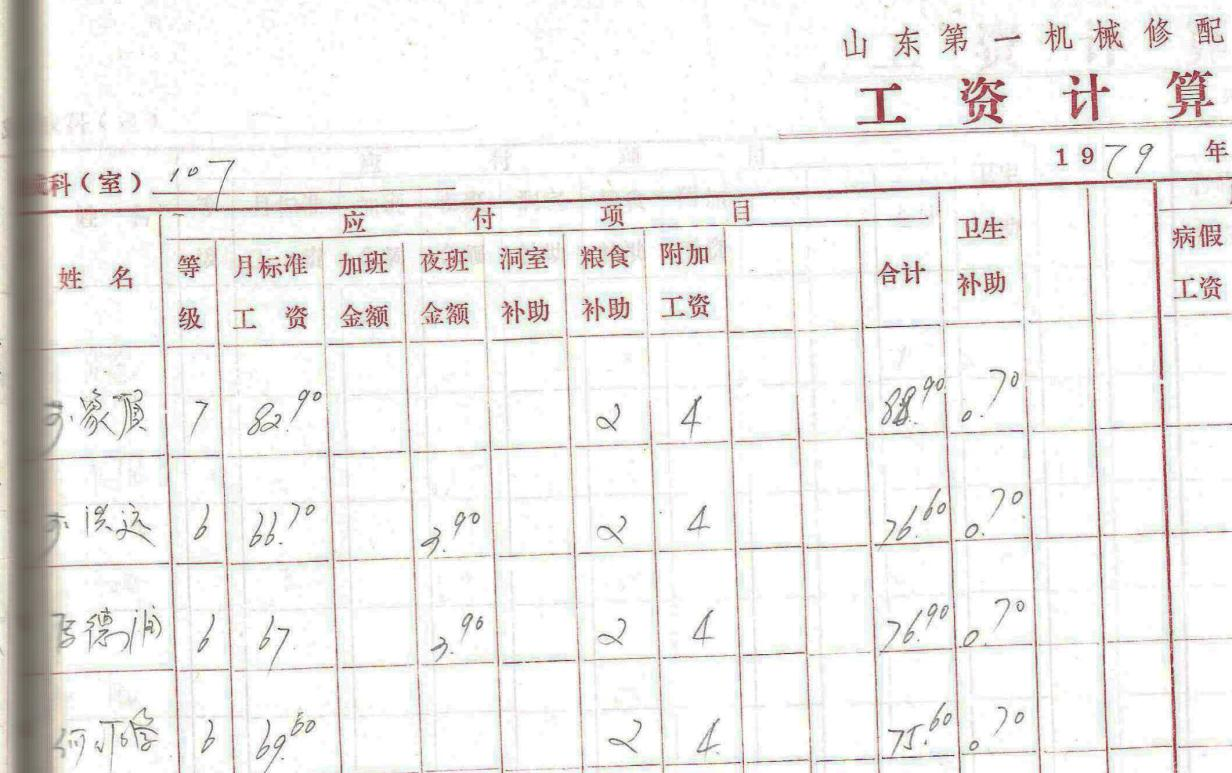 山东第一机械修配
工资计算
1979年
科（室） 107
应付项目
姓名 等级 月标准工资 加班金额 夜班金额 洞室补助 粮食补助 附加工资 合计 卫生补助 病假工资
家顶 7 82.90 2 4 88.90 0.70
洪运 6 66.70 3.90 2 4 76.60 0.70
德润 6 67. 3.90 2 4 76.90 0.70
何 6 69.60 2 4 75.60 0.70